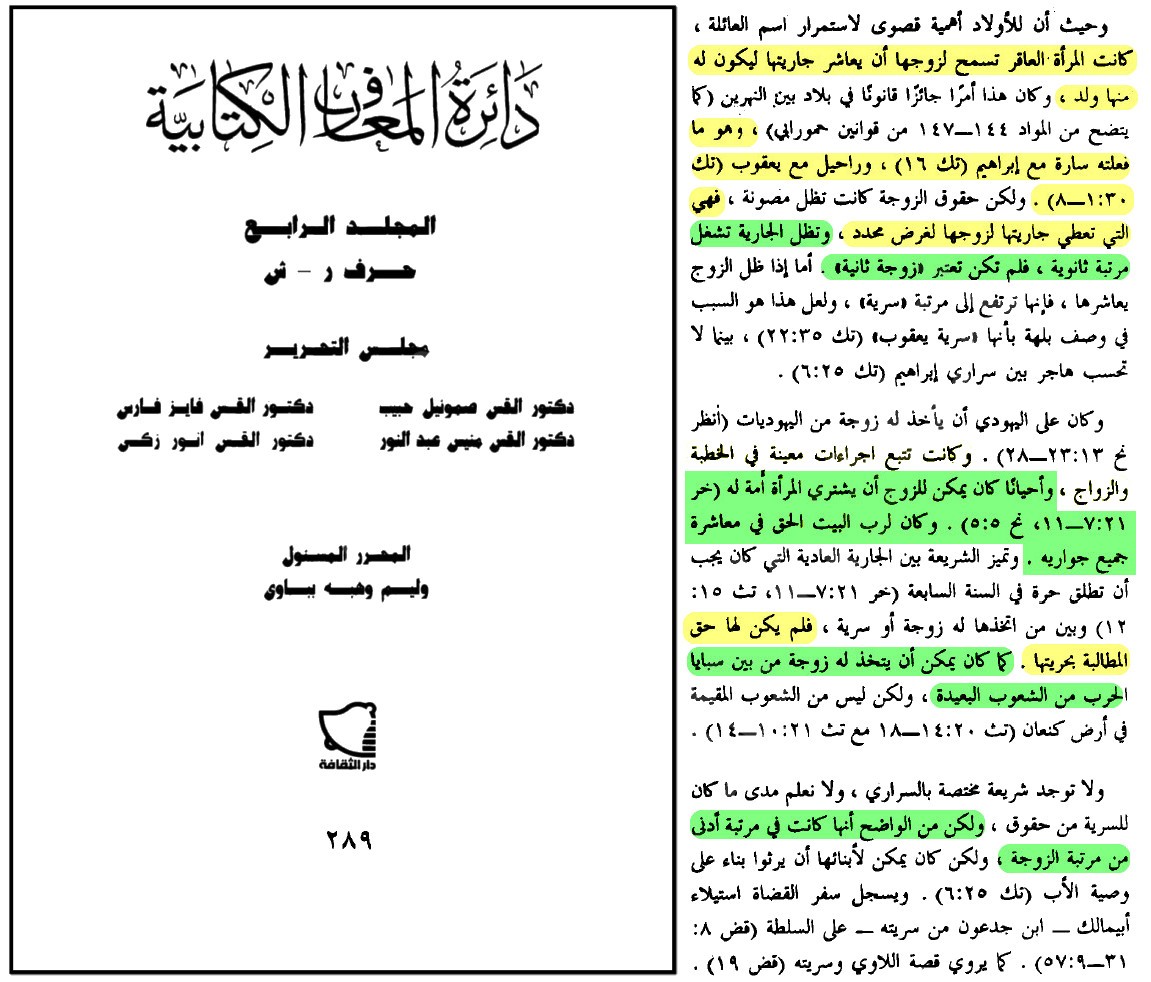 دَائِرَةُ المَعَارِفِ الكِتَابِيَّة
المجلد الرابع
حرف ر – ش
مجلس التحرير
دكتور القس صموئيل حبيب دكتور القس فايز فارس
دكتور القس منيس عبد النور دكتور القس انور زكى
المحرر المسئول
وليم وهبه بباوى
دار الثقافة
٢٨٩
وحيث أن للأولاد أهمية قصوى لاستمرار اسم العائلة ،
كانت المرأة العاقر تسمح لزوجها أن يعاشر جاريتها ليكون له
منها ولد ، وكان هذا أمرًا جائزًا قانونًا في بلاد بين النهرين (كما
يتضح من المواد ١٤٤—١٤٧ من قوانين حمورابي) ، وهو ما
فعلته سارة مع إبراهيم (تك ١٦) ، وراحيل مع يعقوب (تك
٣٠:١—٨) . ولكن حقوق الزوجة كانت تظل مصونة ، فهي
التي تعطي جاريتها لزوجها لغرض محدد ، وتظل الجارية تشغل
مرتبة ثانوية ، فلم تكن تعتبر «زوجة ثانية» . أما إذا ظل الزوج
يعاشرها ، فإنها ترتفع إلى مرتبة «سرية» ، ولعل هذا هو السبب
في وصف بلهة بأنها «سرية يعقوب» (تك ٣٥:٢٢) ، بينما لا
تحسب هاجر بين سراري إبراهيم (تك ٢٥:٦) .
وكان على اليهودي أن يأخذ له زوجة من اليهوديات (أنظر
نح ١٣:٢٣—٢٨) . وكانت تتبع اجراءات معينة في الخطبة
والزواج ، وأحيانًا كان يمكن للزوج أن يشتري المرأة أمة له (خر
٢١:٧—١١، نح ٥:٥) . وكان لرب البيت الحق في معاشرة
جميع جواريه . وتميز الشريعة بين الجارية العادية التي كان يجب
أن تطلق حرة في السنة السابعة (خر ٢١:٧—١١، تث ١٥:
١٢) وبين من اتخذها له زوجة أو سرية ، فلم يكن لها حق
المطالبة بحريتها . كما كان يمكن أن يتخذ له زوجة من بين سبايا
الحرب من الشعوب البعيدة ، ولكن ليس من الشعوب المقيمة
في أرض كنعان (تث ٢٠:١٤—١٨ مع تث ٢١:١٠—١٤) .
ولا توجد شريعة مختصة بالسراري ، ولا نعلم مدى ما كان
للسرية من حقوق ، ولكن من الواضح أنها كانت في مرتبة أدنى
من مرتبة الزوجة ، ولكن كان يمكن لأبنائها أن يرثوا بناء على
وصية الأب (تك ٢٥:٦) . ويسجل سفر القضاة استيلاء
أبيمالك — ابن جدعون من سريته — على السلطة (قض ٨:
٣١—٩:٥٧) . كما يروي قصة اللاوي وسريته (قض ١٩) .